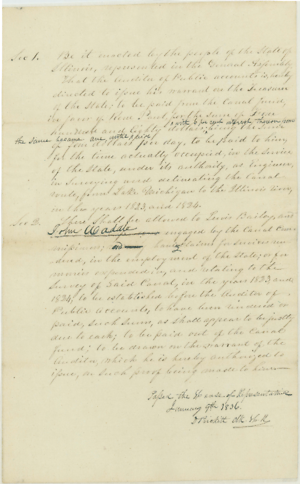 Sec 1. Be it enacted by the people of the State of
Illinois, represented in the General Assembly
That the Auditor of Public accounts is hereby
directed to issue his warrant on the Treasurer
of the State; to be paid from the Canal fund,
in favor of Rene Paul, for the sum of Five
hundred and eighty dollars; with
the same became due until paid;
of four dollars per day, to be paid to him,
for the time actually occupied, in the service
of the State, under its authority, as engineer,
in surveying and estimating the Canal
route, from Lake Michigan to the Illinois river,
in the years 1823 and 1824.
Sec 2. There shall be allowed to Lewis Bailey, and
John Waddle engaged by the Canal Com-
missioners; for services ren-
dered, in the employment of the State; or for
monies expended in, and relating to the
Survey of said Canal, in the years 1823 and
1824; to be established before the Auditor of
Public accounts, to have been earned or
paid; such sums, as shall appear to be justly
due to each; to be paid out of the Canal
fund; to be drawn on the warrant of the
Auditor, which he is hereby authorized to
issue, on such proof being made to him
House of Representatives
January 9th 1836.